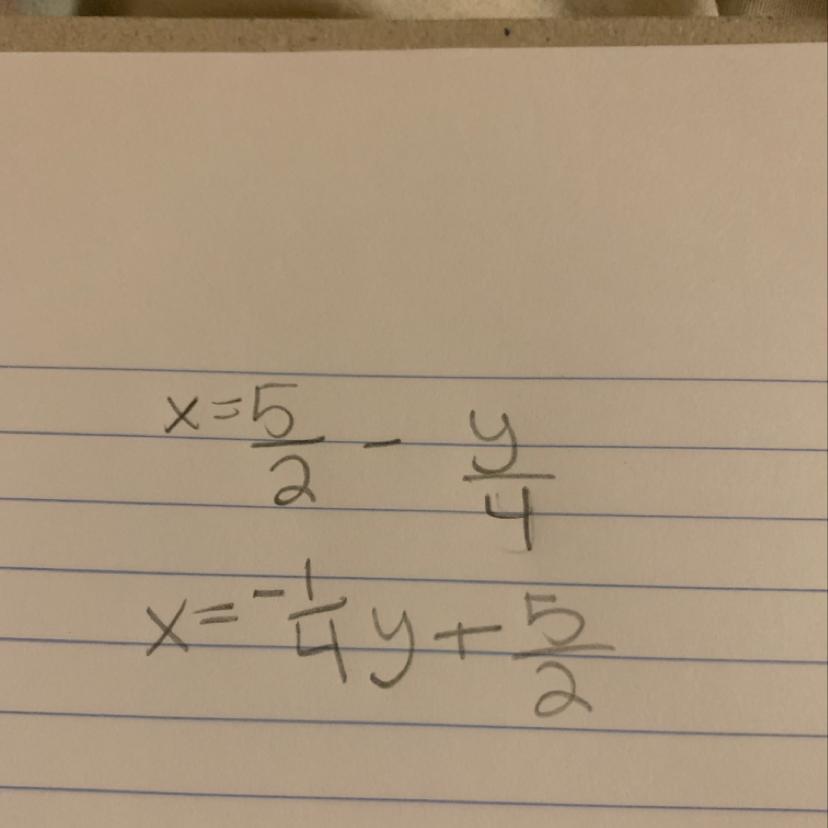 x = 5/2 - y/4
x = -1/4 y + 5/2